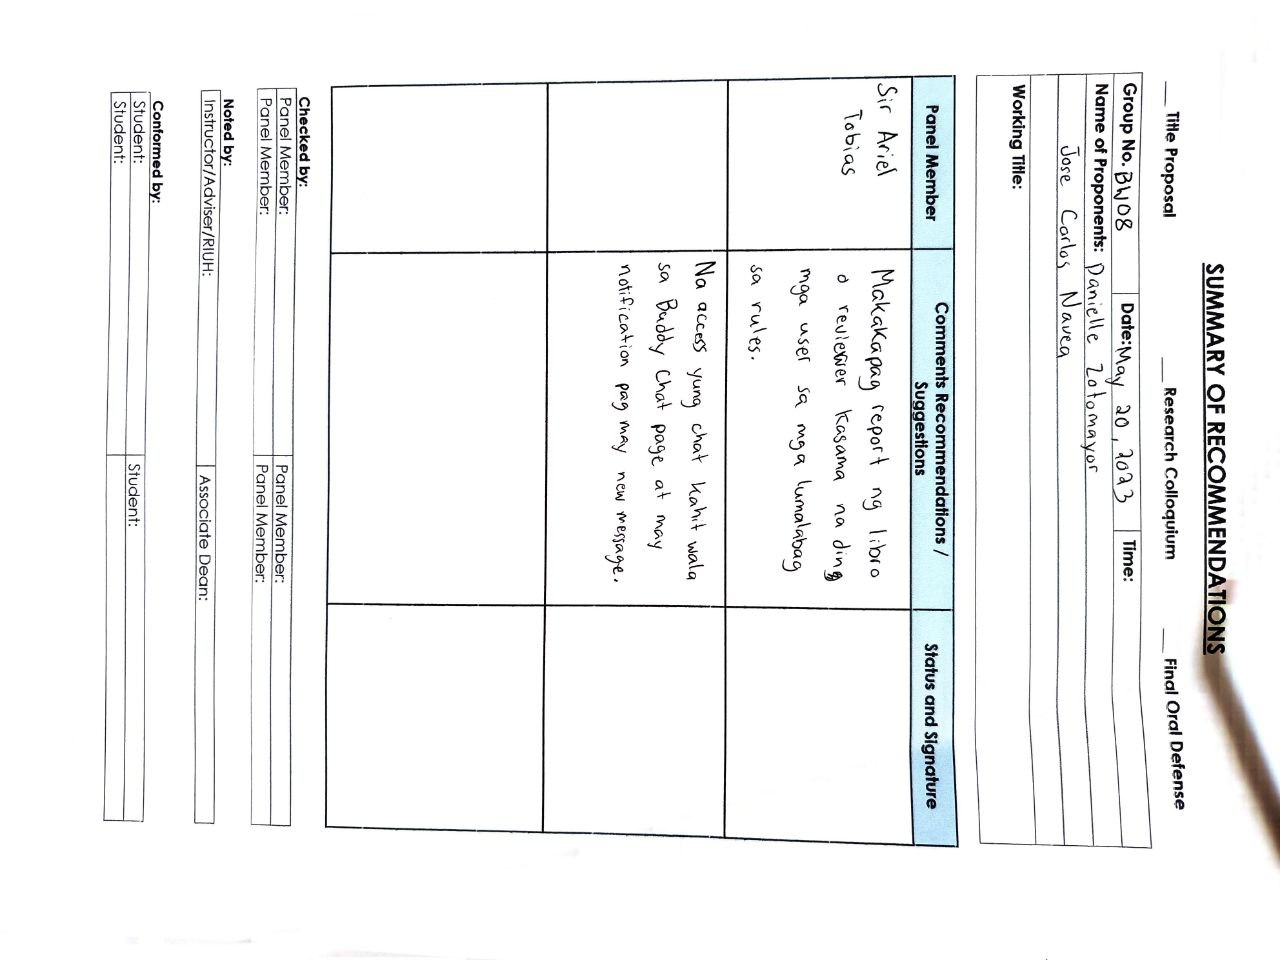 SUMMARY OF RECOMMENDATIONS
___ Title Proposal ___ Research Colloquium ___ Final Oral Defense
Group No. BW08 Date: May 20, 2023 Time:
Name of Proponents: Danielle Zotomayor
Jose Carlos Navea
Working Title:
Panel Member
Comments Recommendations /
Suggestions
Status and Signature
Sir Ariel
Tobias
Makakapag report ng libro
o reviewer kasama na din
mga user sa mga lumalabag
sa rules.
Na access yung chat kahit wala
sa Buddy Chat page at may
notification pag may new message.
Checked by:
Panel Member: Panel Member:
Panel Member: Panel Member:
Noted by:
Instructor/Adviser/RIUH: Associate Dean:
Conformed by:
Student: Student:
Student: